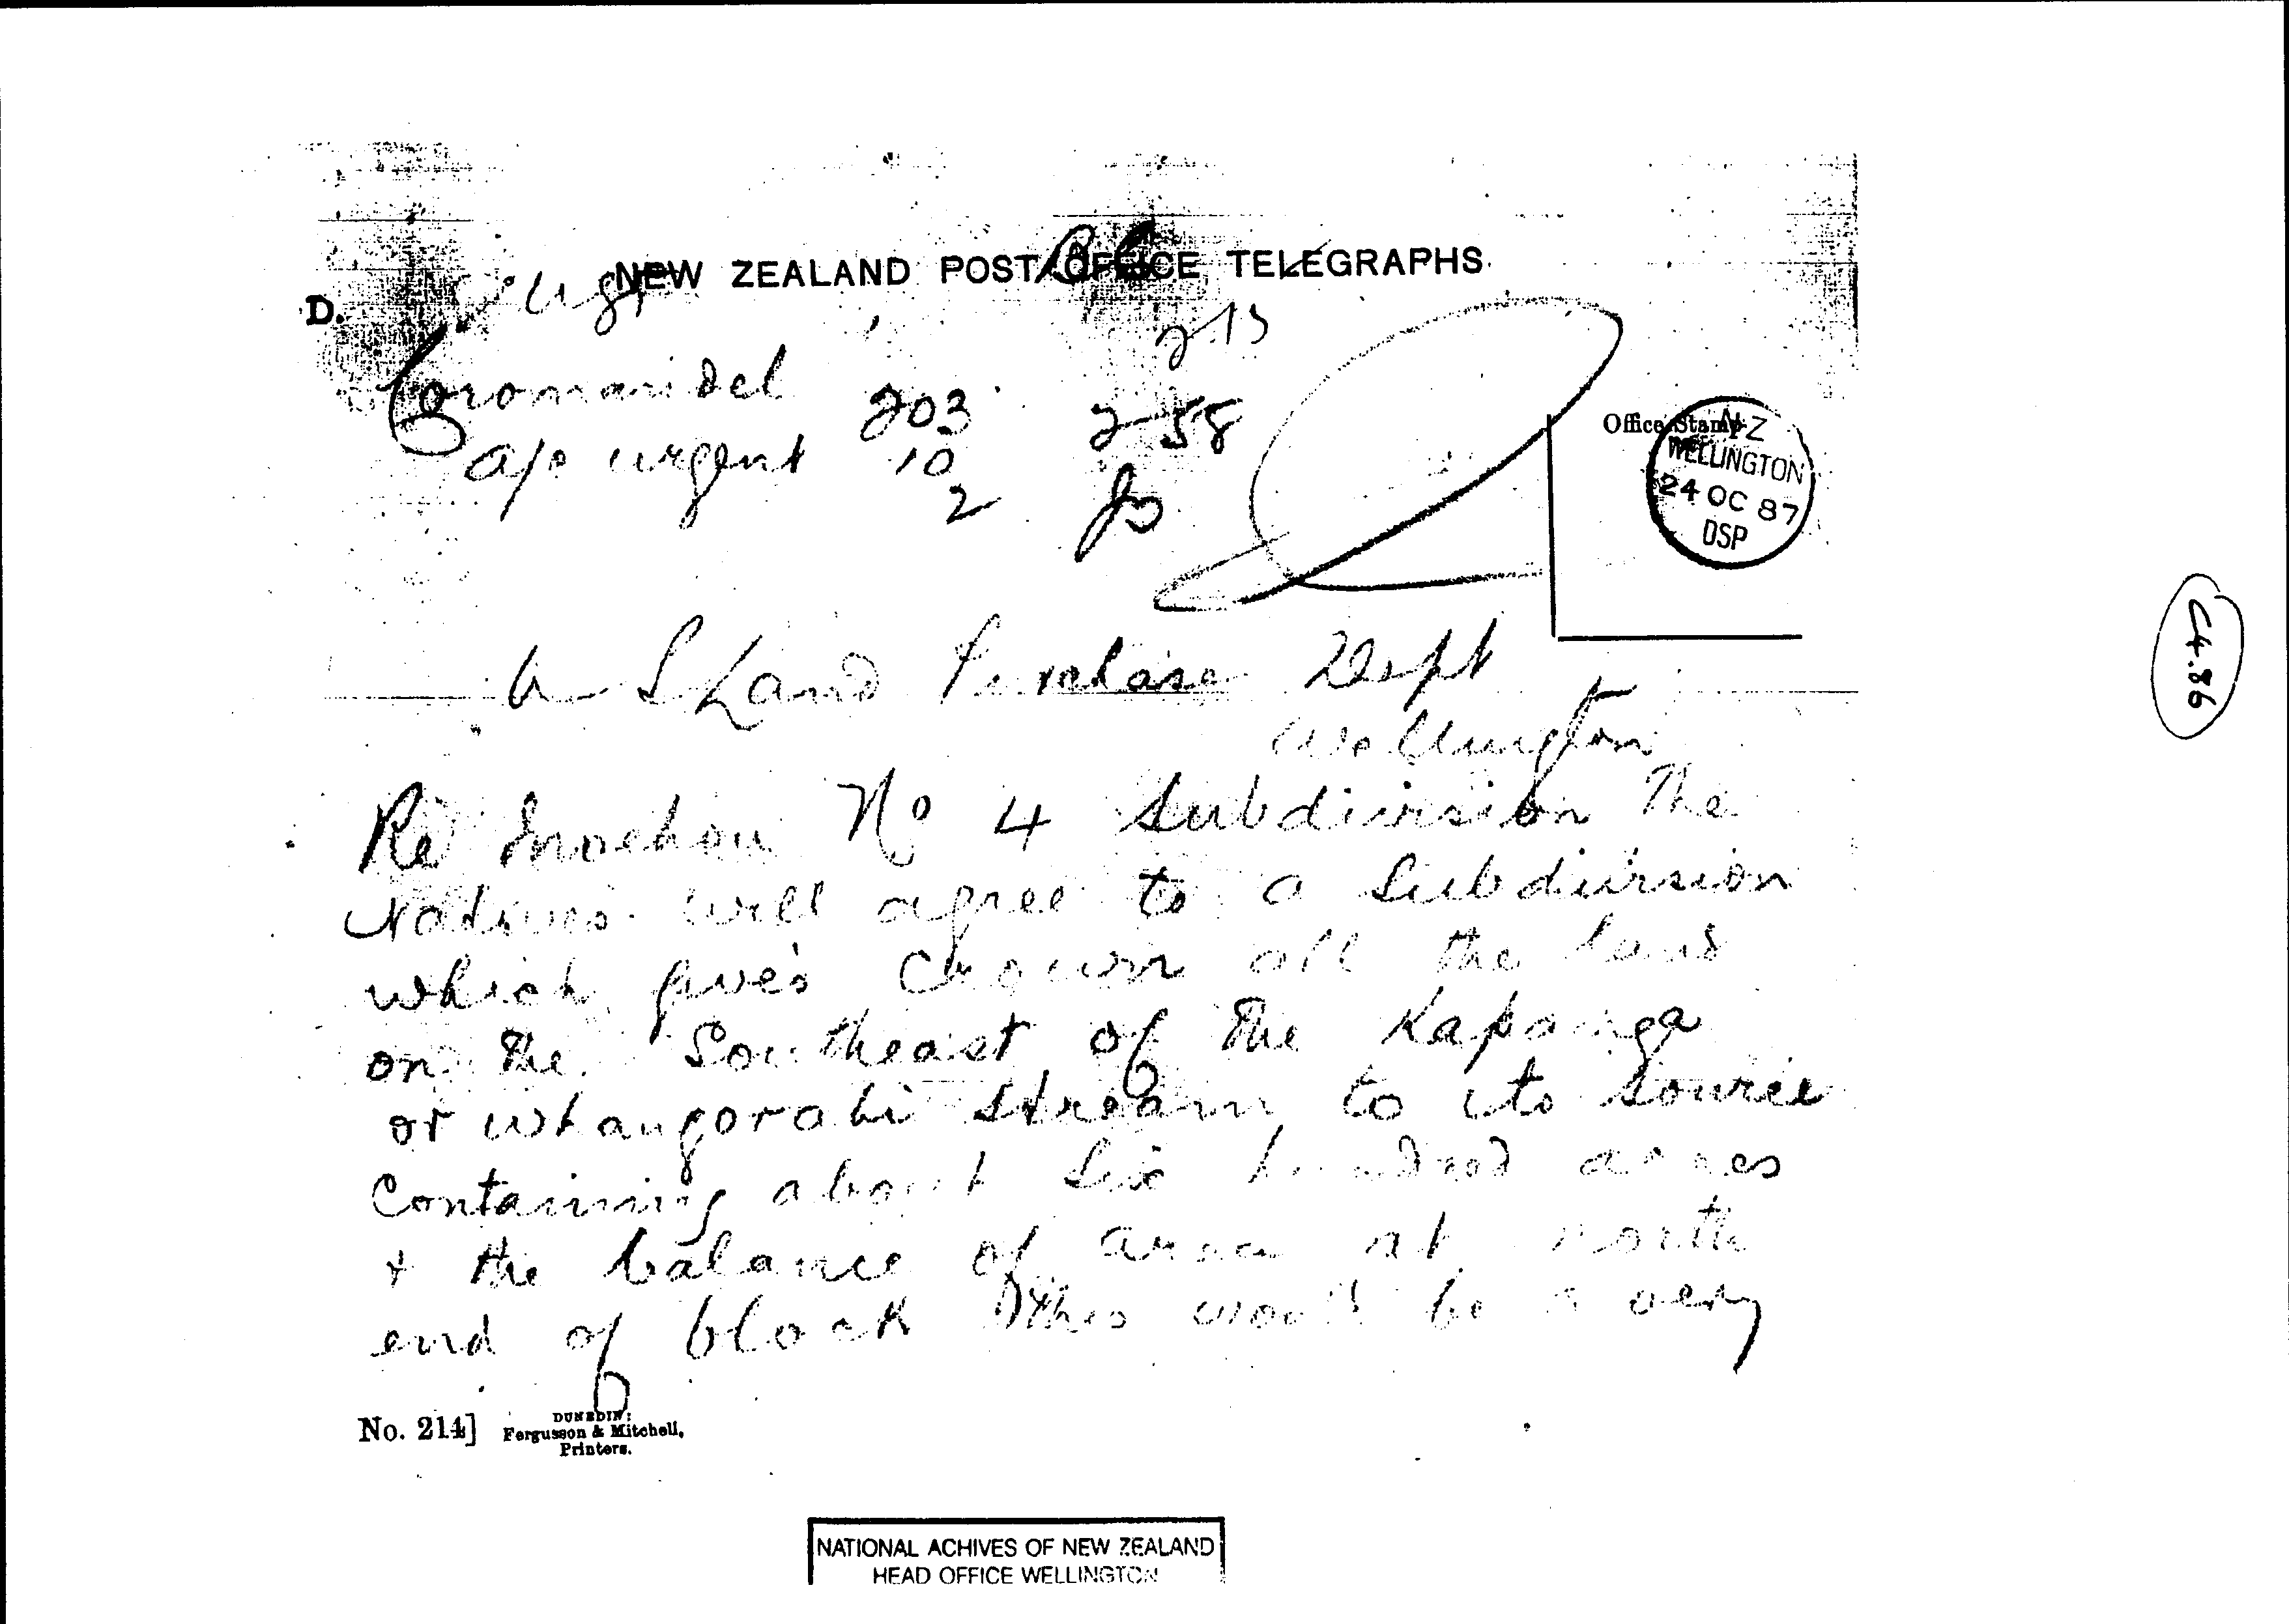 NEW ZEALAND POST OFFICE TELEGRAPHS.
D.
Coromandel 203 2 58
a/o urgent 10
2
Office Stamp
N Z
WELLINGTON
24 OC 87
DSP
U S Land Purchase Dept
Wellington
Re Moehau No 4 Subdivision The
Natives will agree to a Subdivision
which gives Crown all the land
on the Southeast of the Kapanga
or Whangorahi Stream to its source
Containing about Six hundred acres
+ the balance of area at north
end of block This would be a very
No. 214]
DUNEDIN:
Fergusson & Mitchell,
Printers.
NATIONAL ACHIVES OF NEW ZEALAND
HEAD OFFICE WELLINGTON
C4.86